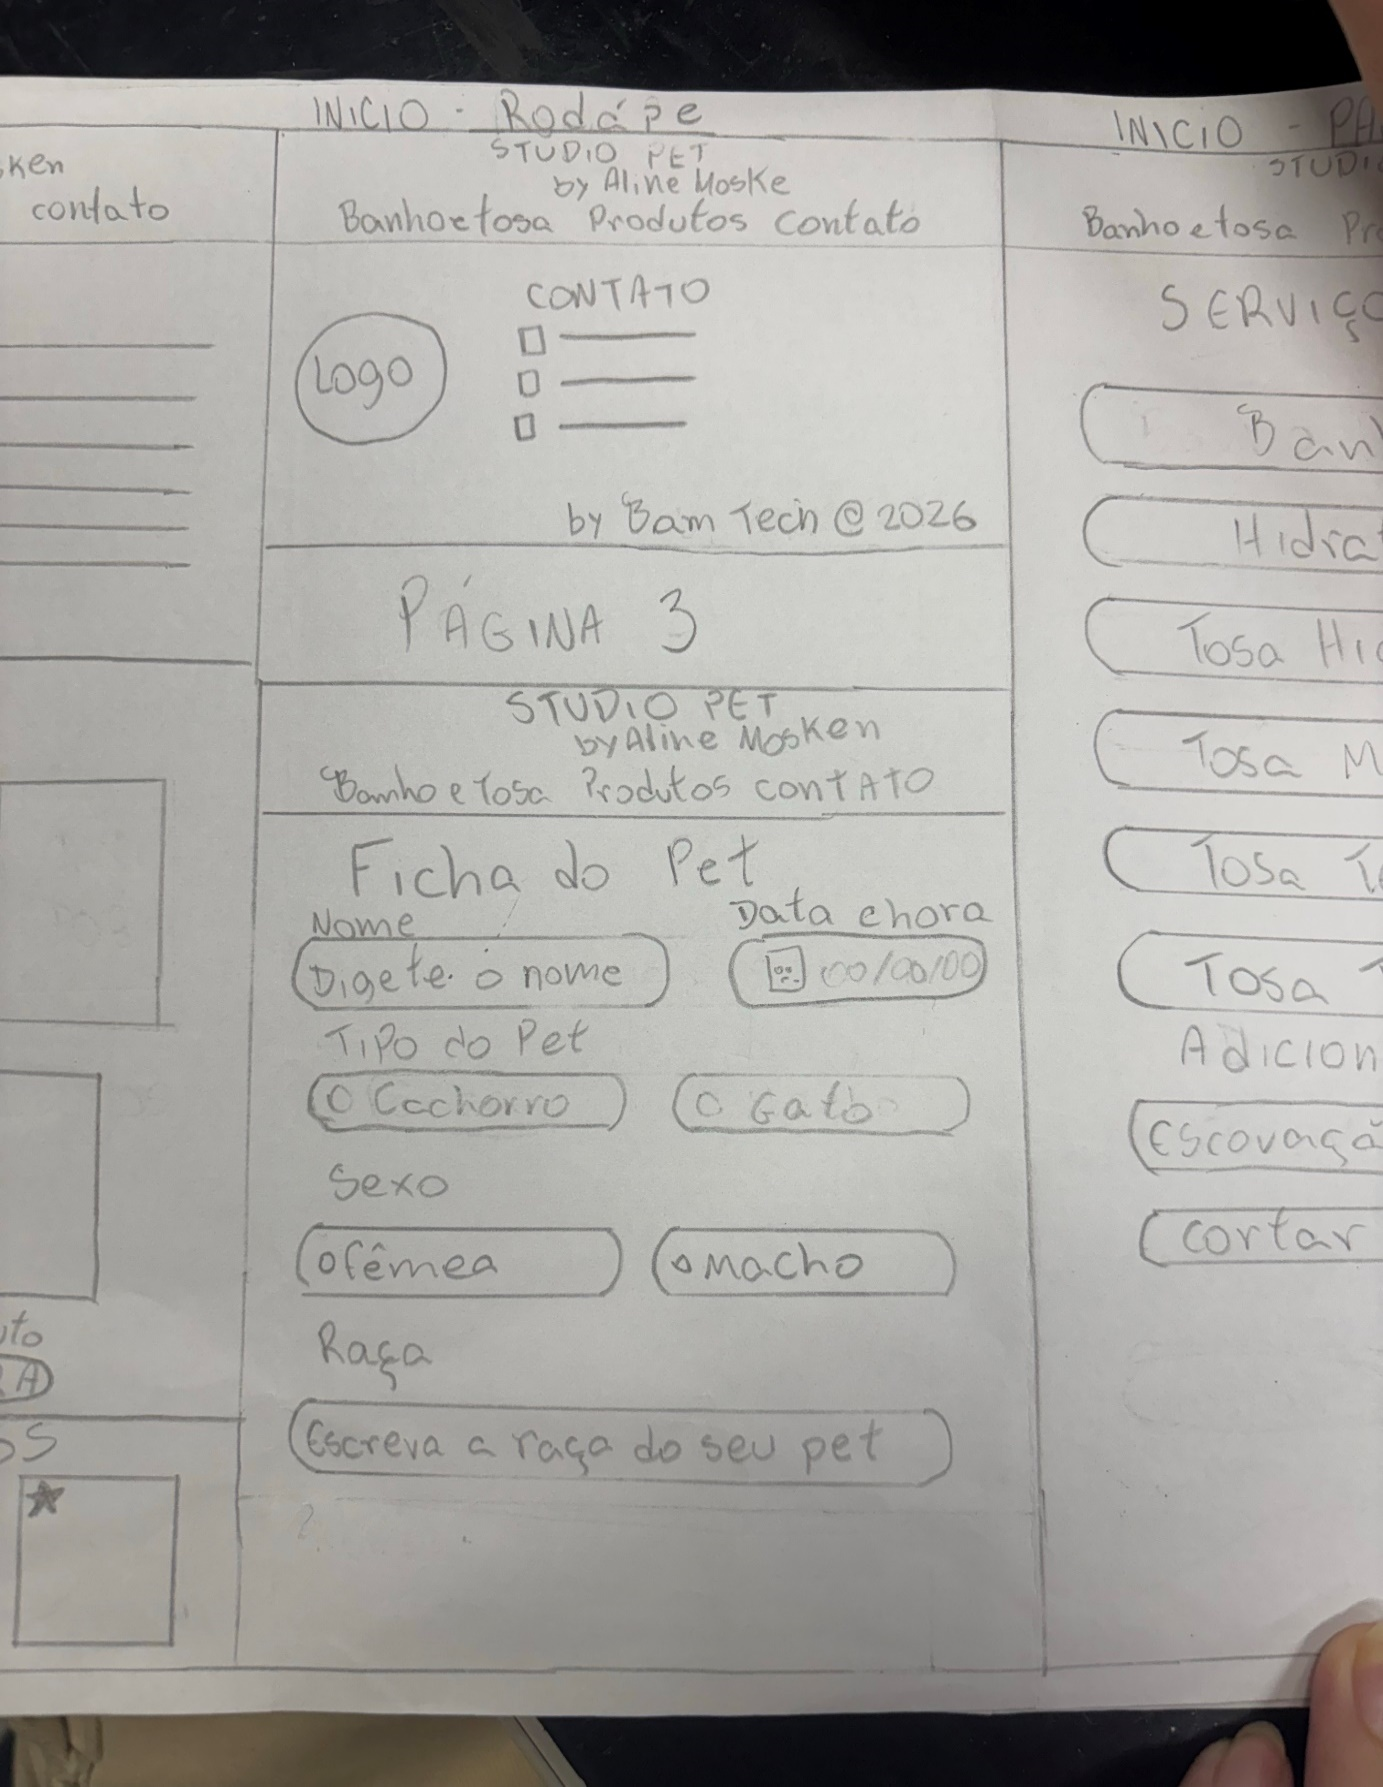 ken
contato
uto
RA
OS
INICIO - Rodápe
STUDIO PET
by Aline Moske
Banhoetosa Produtos contato
CONTATO
Logo
by Bam Tech @ 2026
PÁGINA 3
STUDIO PET
by Aline Mosken
Banho e Tosa Produtos contATO
Ficha do Pet
Nome Data ehora
Digete o nome 00/00/00
TIPO do Pet
O Cachorro O Gato
Sexo
O fêmea O macho
Raça
Escreva a raça do seu pet
INICIO - PÁ
STUDI
Banho etosa Pro
SERVIÇO
Banh
Hidrat
Tosa Hig
Tosa M
Tosa T
Tosa
Adicion
Escovaçã
cortar